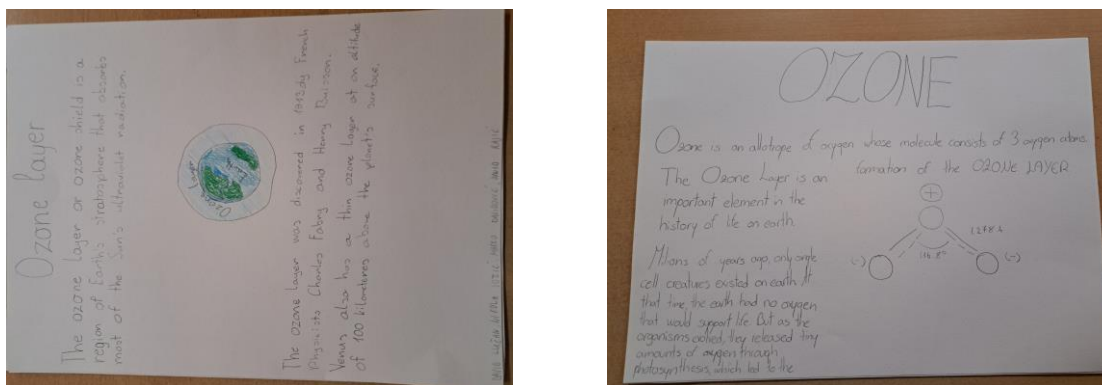 Ozone layer
The ozone layer or ozone shield is a
region of Earth's stratosphere that absorbs
most of the Sun's ultraviolet radiation.
Ozone Layer
Earth
The ozone layer was discovered in 1913 by French
Physicists Charles Fabry and Henry Buisson.
Venus also has a thin ozone layer at an altitude
of 100 kilometeres above the planet's surface.
OZONE
Ozone is an allotrope of oxygen whose molecule consists of 3 oxygen atoms.
The Ozone Layer is an
important element in the
history of life on earth.
Milions of years ago, only single
cell creatures existed on earth. At
that time, the earth had no oxygen
that would support life. But as the
organisms evolved, they released tiny
amounts of oxygen through
photosynthesis, which led to the
formation of the OZONE LAYER
+
(-)
(-)
116.8°